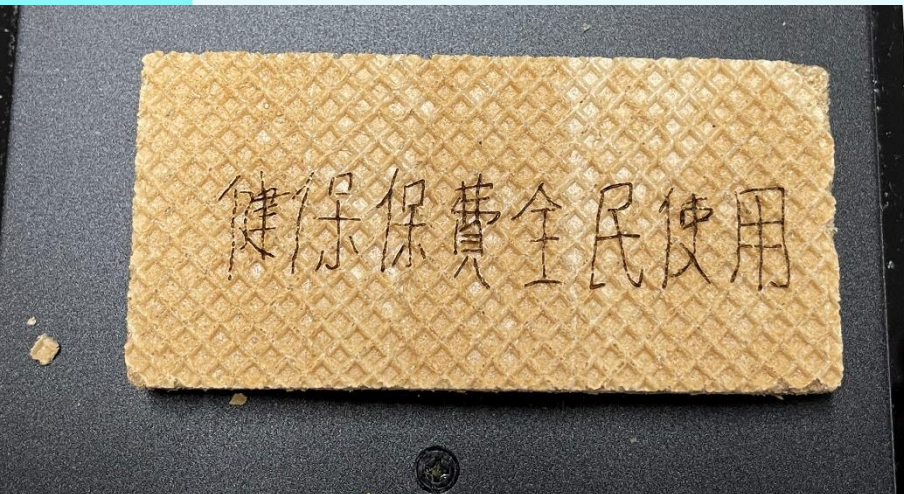 健保保費全民使用